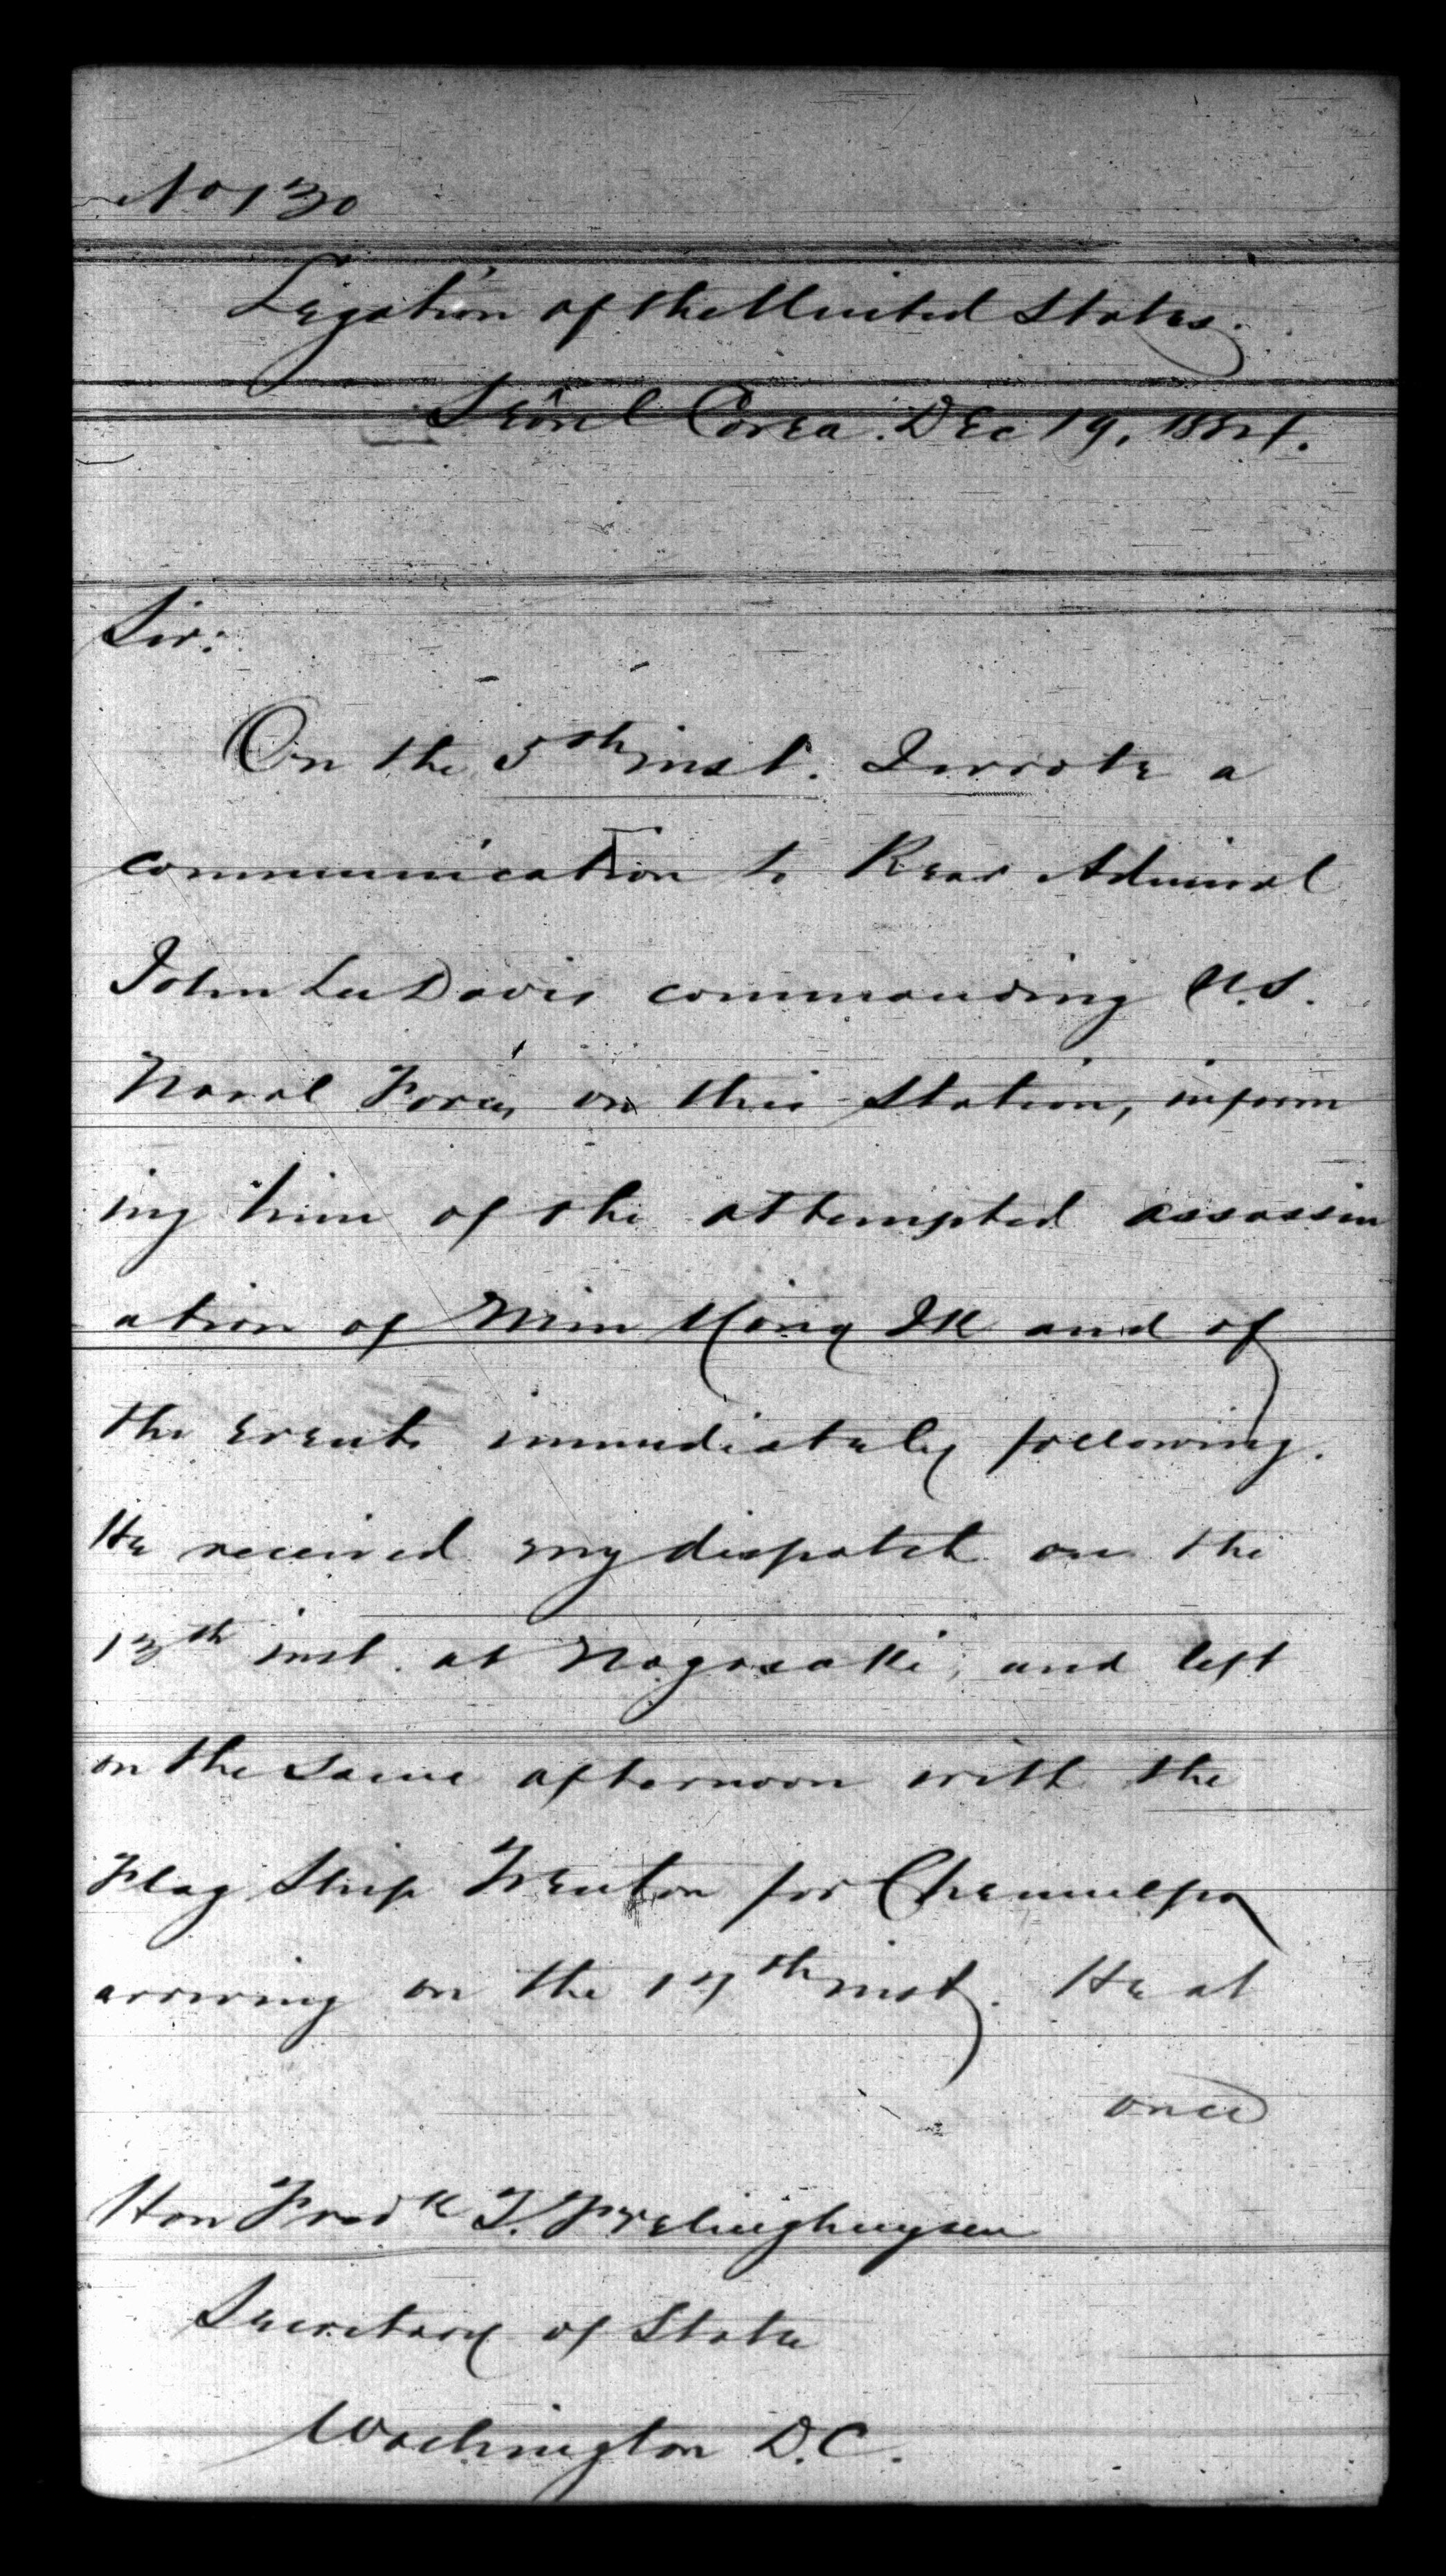 No 130
Legation of the United States.
Seoul Corea. Dec 19, 1884.
Sir:
On the 5th inst. I wrote a
communication to Rear Admiral
John Lee Davis commanding U.S.
Naval Force, on this Station, inform
ing him of the attempted assassin
ation of Min Yong Ik and of
the events immediately following.
He received my dispatch on the
13th inst. at Nagasaki, and left
on the same afternoon with the
Flag Ship Trenton for Chemulpo
arriving on the inst. He at
once
Hon Fredk T. Frelinghuysen
Secretary of State
Washington D.C.